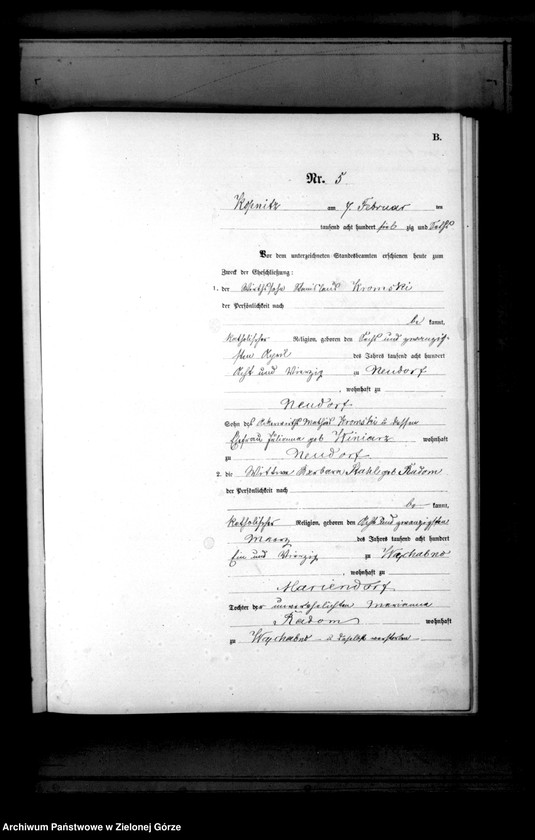 B.
Nr. 5
Kopnitz am 7. Februar
tausend acht hundert zig und Sechs
Vor dem unterzeichneten Standesbeamten erschienen heute zum
Zweck der Eheschließung:
1. der Wirthssohn Stanislaus Kromski
der Persönlichkeit nach
be kannt,
katholischer Religion, geboren den Sechs und zwanzig-
sten April des Jahres tausend acht hundert
Acht und Vierzig zu Neudorf
, wohnhaft zu
Neudorf
Sohn des Ackerwirths Mathias Kromski u dessen
Ehefrau Julianna geb Winiarz wohnhaft
zu Neudorf
2. die Wittwe Barbara geb Radom
der Persönlichkeit nach
be kannt,
katholischer Religion, geboren den Acht und zwanzigsten
Maerz des Jahres tausend acht hundert
Ein und Vierzig zu Wojchabno
, wohnhaft zu
Mariendorf
Tochter der unverehelichten Marianna
Radom wohnhaft
zu Wojchabno u daselbst verstorben
Archiwum Państwowe w Zielonej Górze